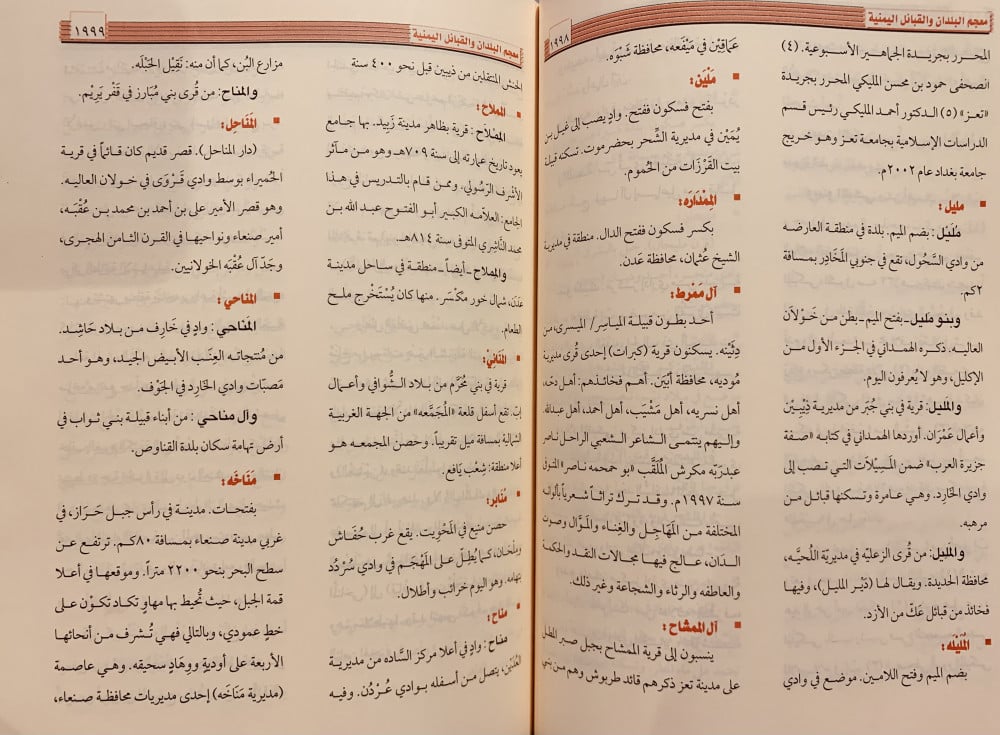 معجم البلدان والقبائل اليمنية
١٩٩٨
المحرر بجريدة الجماهير الأسبوعية. (٤)
الصحفي حمود بن محسن المليكي المحرر بجريدة
«تعز» (٥) الدكتور أحمد المليكي رئيس قسم
الدراسات الإسلامية بجامعة تعز وهو خريج
جامعة بغداد عام ٢٠٠٢م.
مليل:
مَلَيْل: بضم الميم. بلدة في منطقة العارضه
من وادي السَّحُول، تقع في جنوبي المَخَادِر بمسافة
٢كم.
وبنو مَليل ـ بفتح الميم ـ بطن من خَوْلَان
العاليه. ذكره الهمداني في الجزء الأول من
الإكليل، وهو لا يُعرفون اليوم.
والمَليل: قرية في بني جُبَر من مديرية ذِيبِيْن
وأعمال عَمْرَان. أوردها الهمداني في كتابه «صفة
جزيرة العرب» ضمن المَسِيْلات التي تصب إلى
وادي الخَارِد. وهي عامرة وتسكنها قبائل من
مرهبه.
والمَلِيل: من قُرى الزعليّه في مديريّة اللُّحيَّه،
محافظة الحديدة. ويقال لها (دَيْر المليل)، وفيها
فخائذ من قبائل عَكّ من الأزد.
المُلَيْلَه:
بضم الميم وفتح اللامين. موضع في وادي
عَمَاقِيْن في مَيْفَعه، محافظة شَبْوَه.
مَلْيَن:
بفتح فسكون ففتح. وادٍ يصب إلى غيل بن
يُمَيْن في مديرية الشِّحر بحضرموت. تسكنه قبيلة
بيت القَرْزَات من الحُموم.
المِمْدَارَه:
بكسر فسكون ففتح الدال. منطقة في مديرية
الشيخ عُثمان، محافظة عَدن.
آل مَمْرط:
أحد بطون قبيلة المياسر/ الميسري، من
دَثِيْنه. يسكنون قرية (كبرات) إحدى قُرى مديرية
مُوديه، محافظة أبْيَن. أهم فخائذهم: أهل دحّه،
أهل نسريه، أهل مَشْيَب، أهل أحمد، أهل عبدالله.
وإليهم ينتمي الشاعر الشعبي الراحل ناصر
عبدربّه مكرش المُلقَّب «بو حمحمه ناصر» المتوفى
سنة ١٩٩٧م. وقد ترك تراثاً شعرياً بألوانه
المختلفة من المهَاجِل والغِناء والمَرَّال وصوت
الدَان، عالج فيها مجالات النقد والحكمة
والعاطفه والرثاء والشجاعة وغير ذلك.
آل الممشاح:
ينسبون إلى قرية الممشاح بجبل صبر المطل
على مدينة تعز ذكرهم قائد طربوش وهم من بني
معجم البلدان والقبائل اليمنية
١٩٩٩
الحنش المتنقلين من ذيبين قبل نحو ٤٠٠ سنة
المملاح:
المِمْلاح: قرية بظاهر مدينة زَبِيد. بها جامع
يعود تاريخ عمارته إلى سنة ٧٠٩هـ وهو من مآثر
الأشرف الرَّسُولي. وممن قام بالتدريس في هذا
الجامع: العلّامه الكبير أبو الفتوح عبد الله بن
محمد النَّاشِري المتوفى سنة ٨١٤هـ.
والمملاح ـ أيضاً ـ منطقة في ساحل مدينة
عَدَن، شمال خور مكْسَر. منها كان يُسْتَخْرج ملح
الطعام.
المَنَانيْ:
قرية في بني مُحَّرم من بلاد الشَّوَافي وأعمال
إب. تقع أسفل قلعة «المُجمَّعه» من الجهة الغربية
الشمالية بمسافة ميل تقريباً. وحصن المجمعه هو
أعلا منطقة: شِعْب يَافع.
مُنَابر:
حصن منيع في المَحْويت. يقع غرب حُفَاش
وملْحَان، كما يُطِلّ على المَهْجَم في وادي سُرْدُد
بتهامه. وهو اليوم خرائب وأطلال.
مناح:
مناح: وادٍ في أعلا مركز السَّاده من مديرية
يتصل من أسفله بوادي عُرْدُن. وفيه
مزارع البُن، كما أن منه: نَقِيْل الحَبْلَه.
والمناح: من قُرى بني مُبَارز في قَفْر يَرِيْم.
المَنَاحِل:
(دار المناحل). قصر قديم كان قائماً في قرية
الحُميراء بوسط وادي قَرْوَى في خولان العاليه.
وهو قصر الأمير علي بن أحمد بن محمد بن عُقْبَه،
أمير صنعاء ونواحيها في القرن الثامن الهجرى،
وجَدّ آل عُقْبَه الخولانيين.
المناحي:
المَناحي: وادٍ في خَارِف من بلاد حَاشِد.
من مُنتجاته العِنَب الأبيض الجيد، وهو أحد
مَصَبّات وادي الخَارِد في الجَوْف.
وآل مناحي: من أبناء قبيلة بني ثواب في
أرض تهامة سكان بلدة القناوص.
مَنَاخَه:
بفتحات. مدينة في رأس جبل حَرَاز، في
غربي مدينة صنعاء بمسافة ٨٠كم. ترتفع عن
سطح البحر بنحو ٢٢٠٠ متراً. وموقعها في أعلا
قمة الجبل، حيث تُحيط بها مهاوٍ تكاد تكوْن على
خطٍ عمودي، وبالتالي فهي تُشرف من أنحائها
الأربعة على أوديةٍ ووِهَادٍ سحيقه. وهي عاصمة
(مديرية مَنَاخَه) إحدى مديريات محافظة صنعاء،